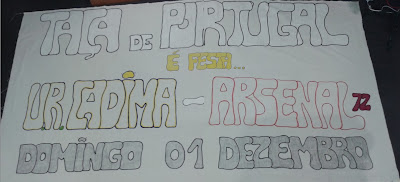 TAÇA DE PORTUGAL
É FESTA...
U.R. CADIMA - ARSENAL 72
DOMINGO 01 DEZEMBRO